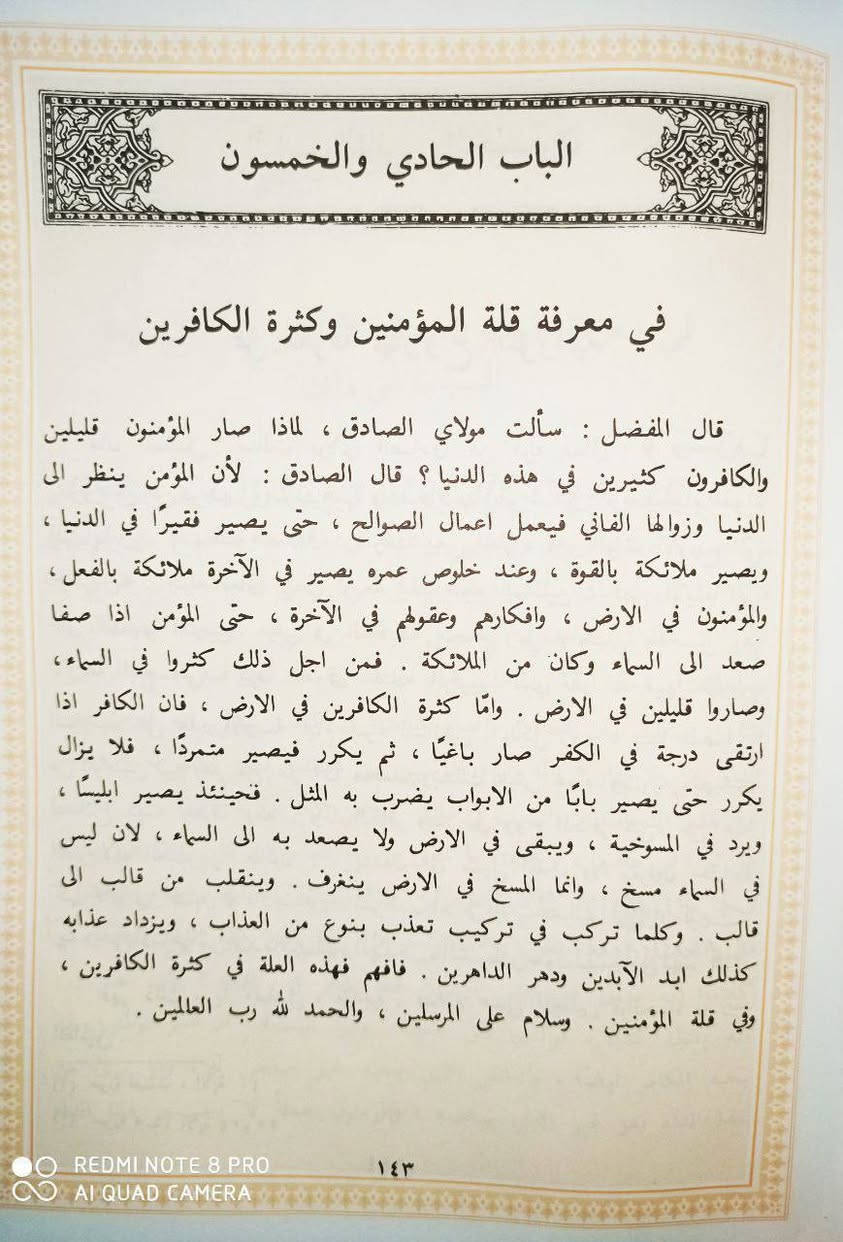 الباب الحادي والخمسون
في معرفة قلة المؤمنين وكثرة الكافرين
قال المفضل : سألت مولاي الصادق ، لماذا صار المؤمنون قليلين
والكافرون كثيرين في هذه الدنيا ؟ قال الصادق : لأن المؤمن ينظر الى
الدنيا وزوالها الفاني فيعمل اعمال الصوالح ، حتى يصير فقيرًا في الدنيا ،
ويصير ملائكة بالقوة ، وعند خلوص عمره يصير في الآخرة ملائكة بالفعل ،
والمؤمنون في الارض ، وافكارهم وعقولهم في الآخرة ، حتى المؤمن اذا صفا
صعد الى السماء وكان من الملائكة . فمن اجل ذلك كثروا في السماء ،
وصاروا قليلين في الارض . وامّا كثرة الكافرين في الارض ، فان الكافر اذا
ارتقى درجة في الكفر صار باغيًا ، ثم يكرر فيصير متمردًا ، فلا يزال
يكرر حتى يصير بابًا من الابواب يضرب به المثل . فحينئذ يصير ابليسًا ،
ويرد في المسوخية ، ويبقى في الارض ولا يصعد به الى السماء ، لان ليس
في السماء مسخ ، وانما المسخ في الارض ينغرف . وينقلب من قالب الى
قالب . وكلما تركب في تركيب تعذب بنوع من العذاب ، ويزداد عذابه
كذلك ابد الآبدين ودهر الداهرين . فافهم فهذه العلة في كثرة الكافرين ،
وفي قلة المؤمنين . وسلام على المرسلين ، والحمد لله رب العالمين .
١٤٣
REDMI NOTE 8 PRO
AI QUAD CAMERA